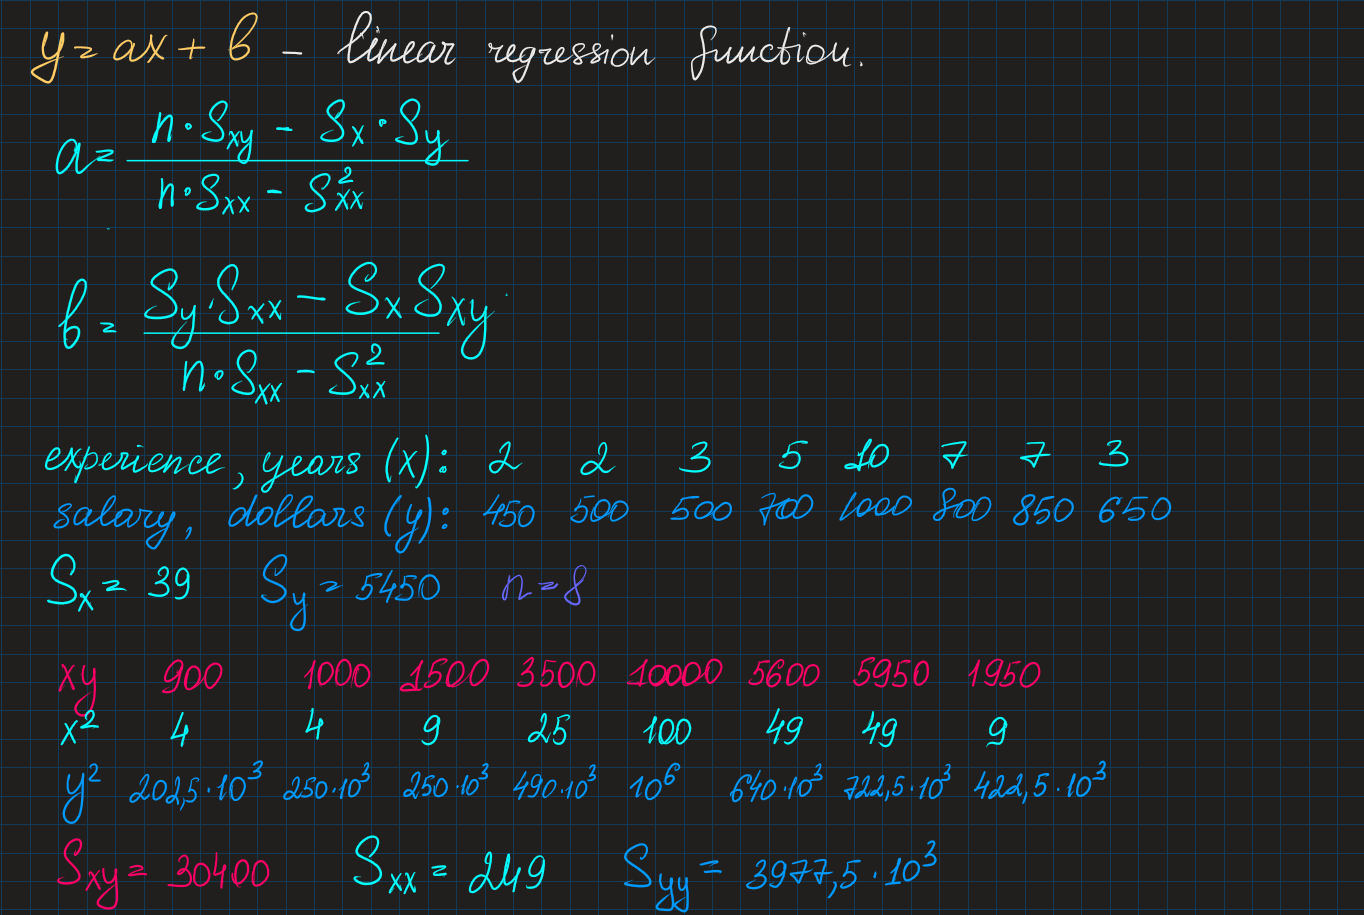 y = ax + b - linear regression function.
a = (n·Sxy - Sx·Sy) / (n·Sxx - S²xx)
b = (Sy·Sxx - SxSxy) / (n·Sxx - S²xx)
experience, years (x): 2 2 3 5 10 7 7 3
salary, dollars (y): 450 500 500 700 1000 800 850 650
Sx = 39 Sy = 5450 n = 8
xy 900 1000 1500 3500 10000 5600 5950 1950
x² 4 4 9 25 100 49 49 9
y² 202,5·10³ 250·10³ 250·10³ 490·10³ 10⁶ 640·10³ 722,5·10³ 422,5·10³
Sxy = 30400 Sxx = 249 Syy = 3977,5·10³